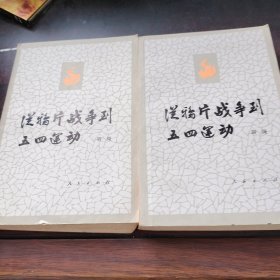 从鸦片战争到
五四运动 简编
人民出版社
从鸦片战争到
五四运动 简编
人民出版社